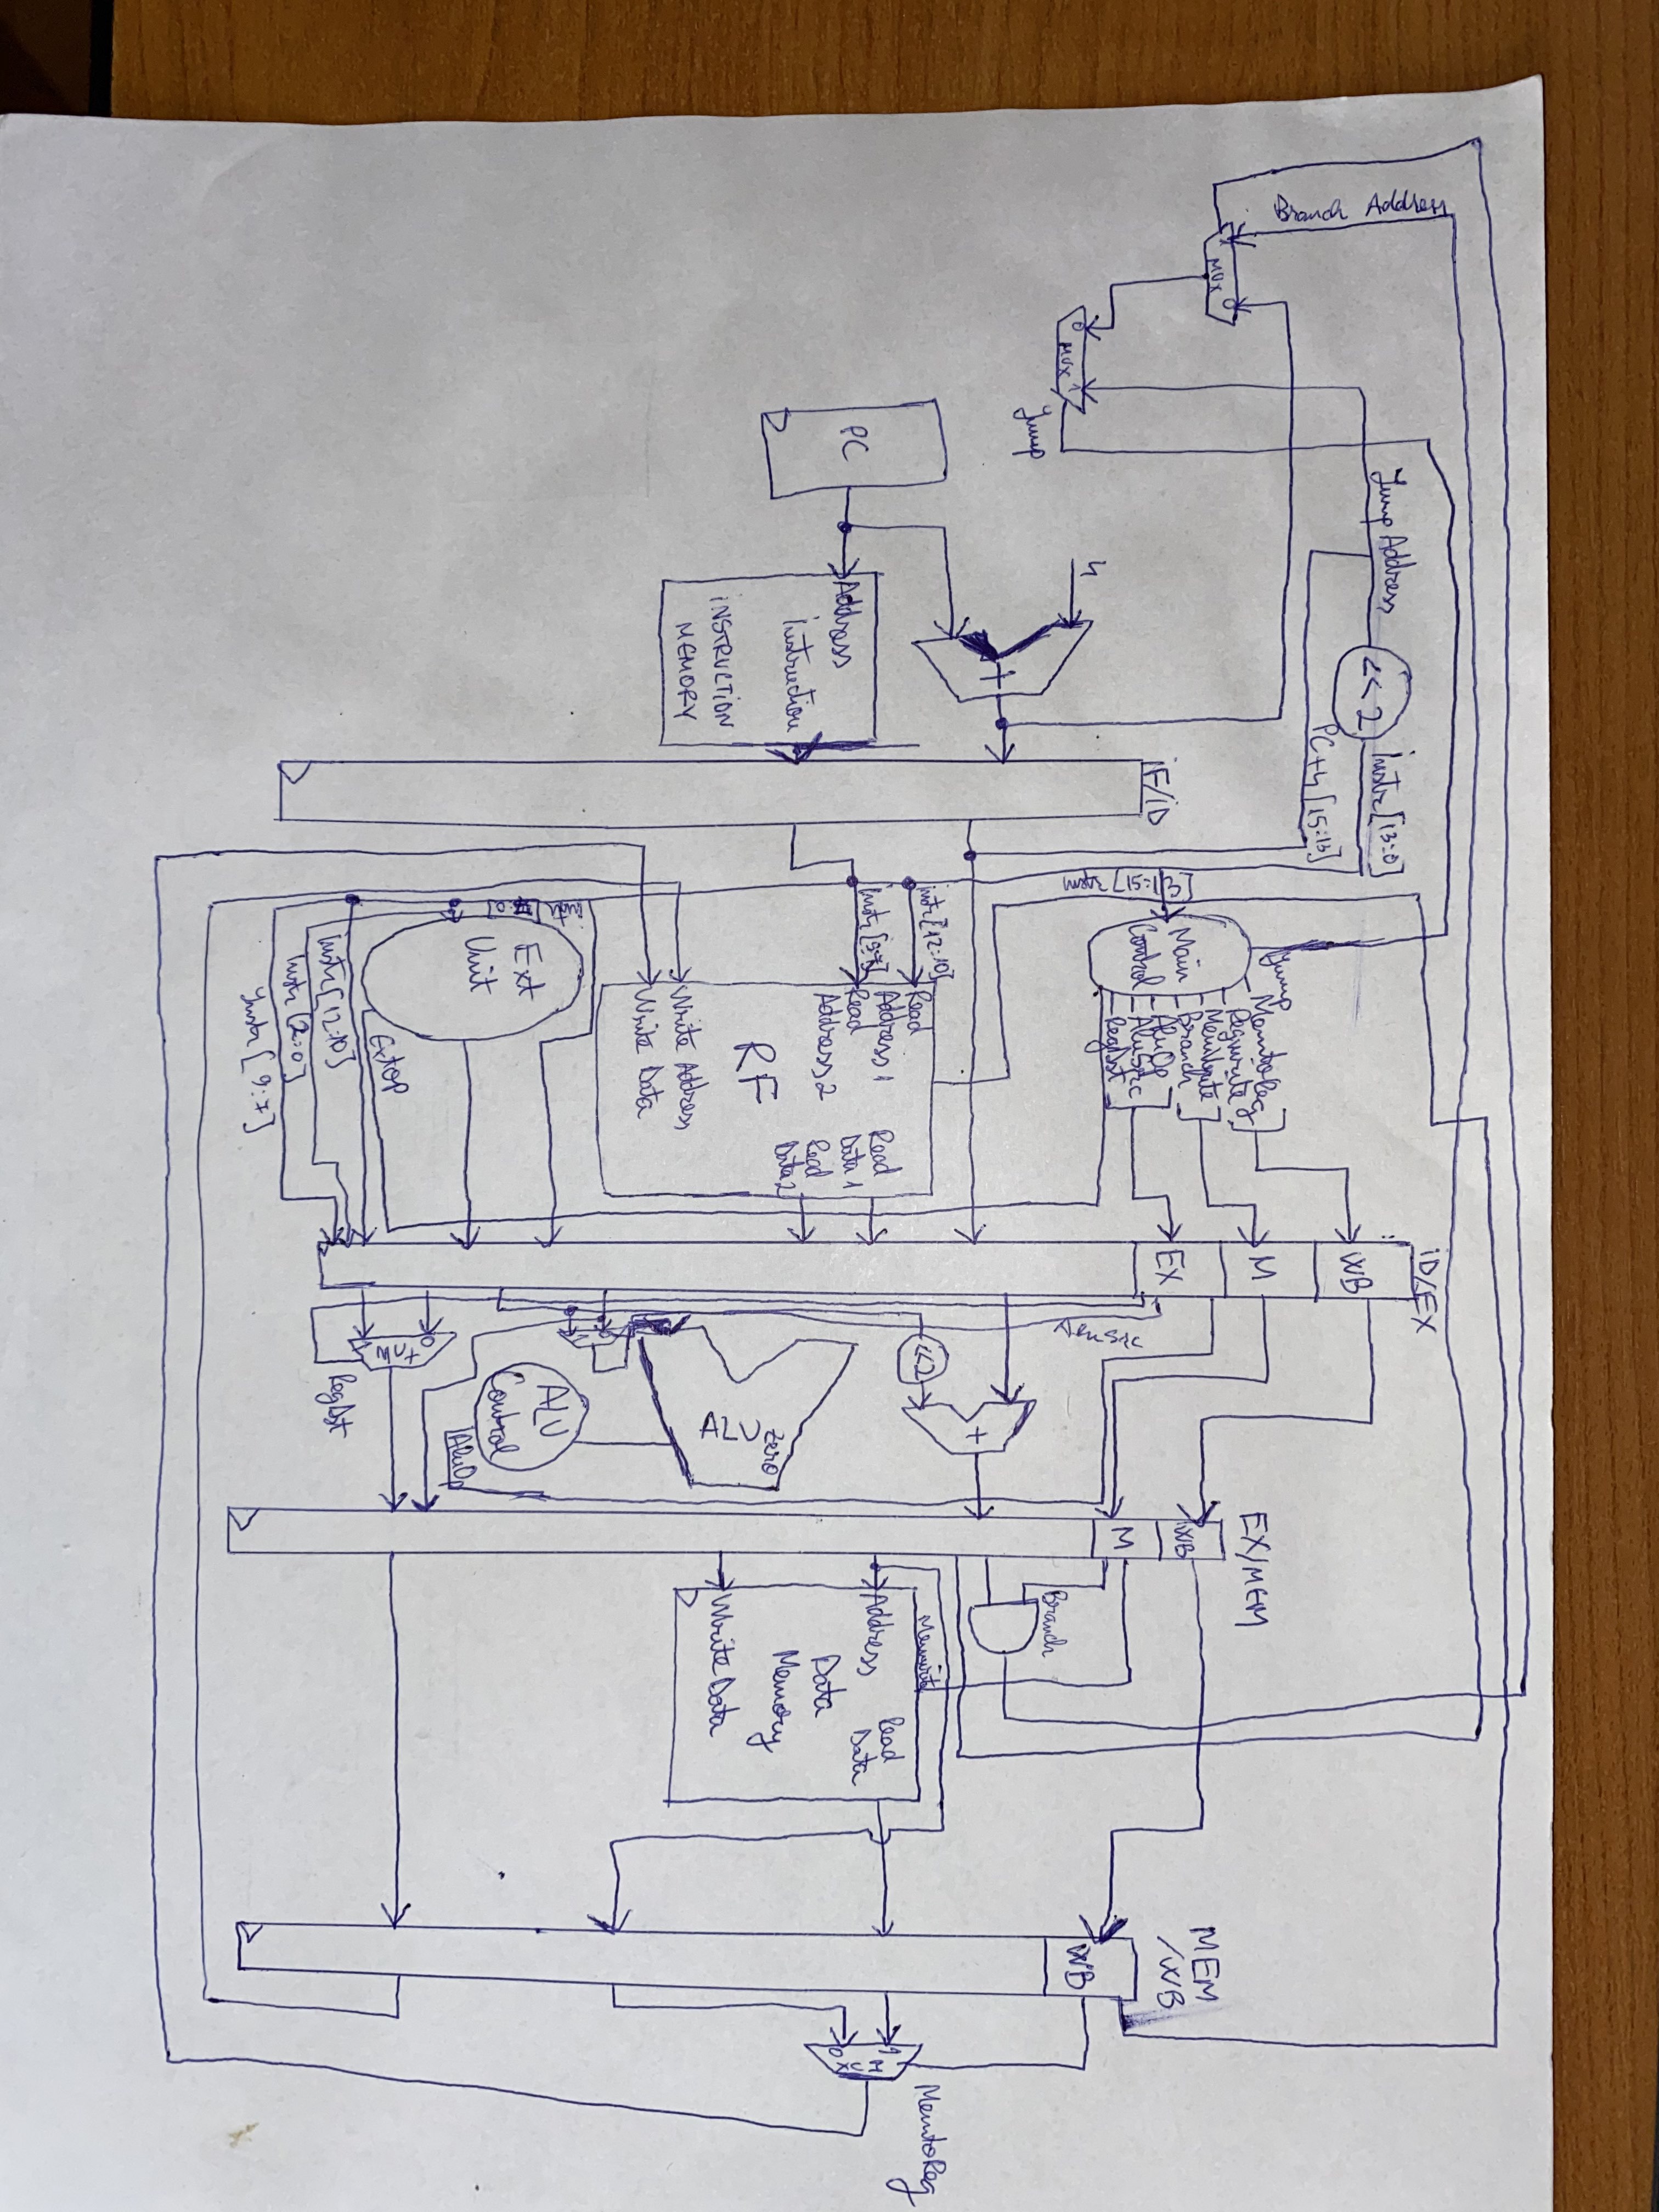 Branch Address
Jump Address
<< 2
Instr [13:0]
PC+4 [15:13]
MUX
0 MUX 1
Jump
4
+
PC
Address
Instruction
INSTRUCTION
MEMORY
IF/ID
instr [15:13]
Main
Control
Jump
MemtoReg
Regwrite
MemWrite
Branch
AluOp
AluSrc
RegDst
instr [12:10]
Instr [9:7]
Read
Address 1
Read
Address 2
Read
Data 1
Read
Data 2
RF
Write Address
Write Data
Ext
Unit
ExtOP
Instr [12:10]
Instr [2:0]
Instr [9:7]
ID/EX
WB
M
EX
AluSrc
+
<<2
ALU
zero
ALU
Control
AluOp
0
MUX
1
RegDst
EX/MEM
WB
M
Branch
Memwrite
Address
Read
Data
Data
Memory
Write Data
MEM
/WB
WB
MemtoReg
1
MUX
0